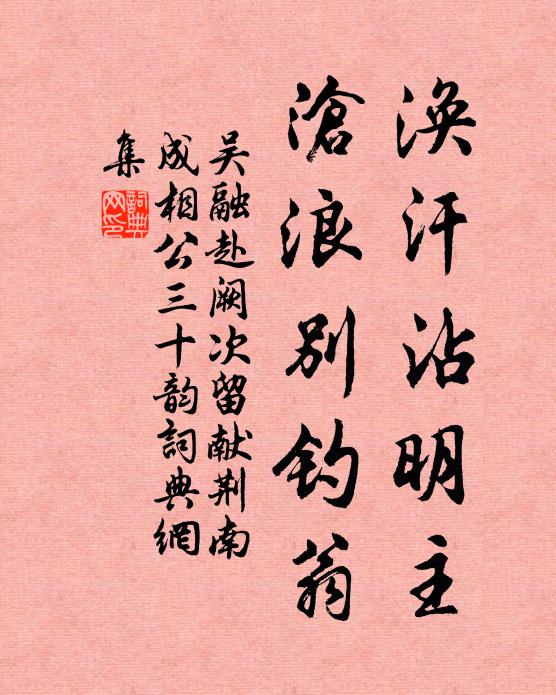 渙汗沾明主
滄浪別钓翁
吴融赴阙次留献荆南
成相公三十韵詞典網
集
詞典
网印